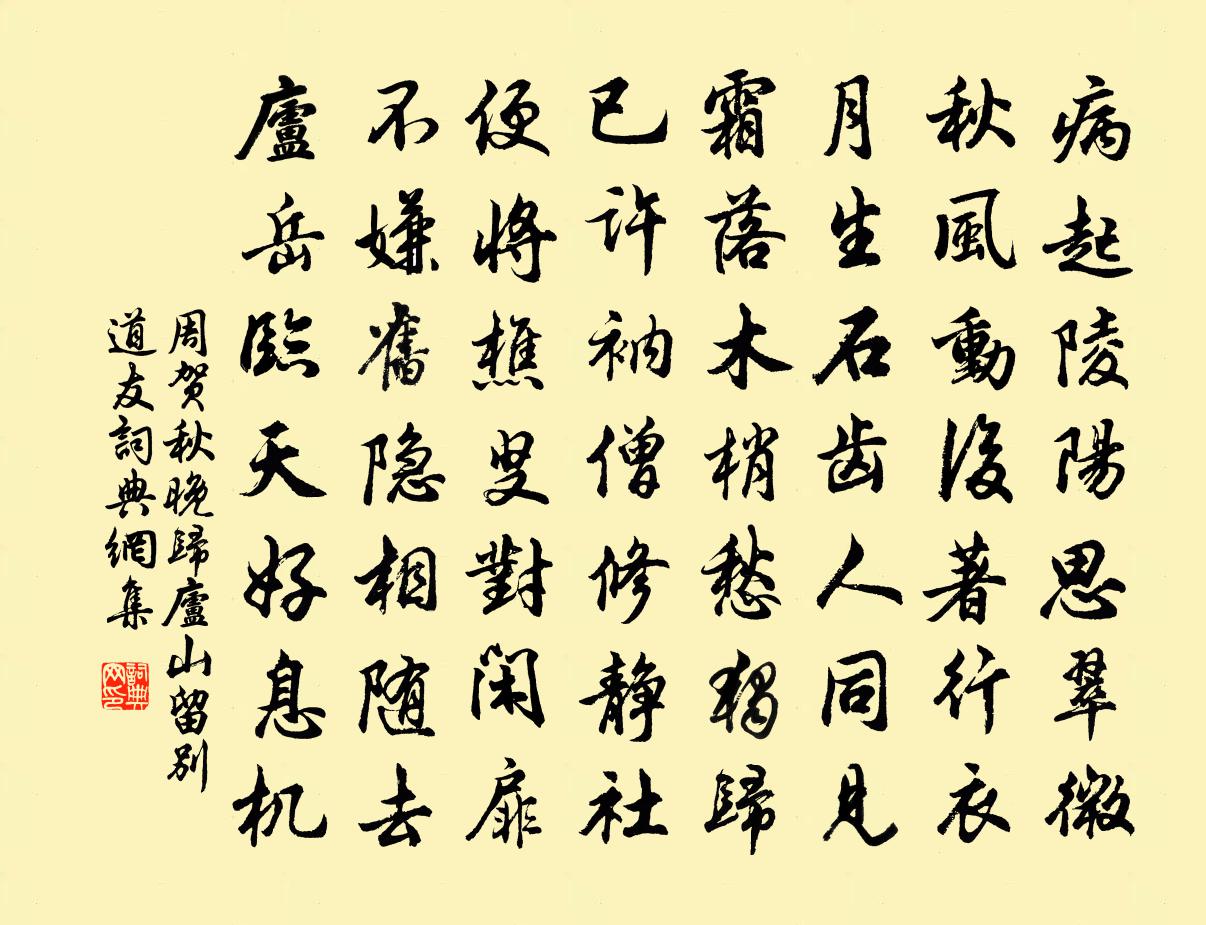 病起陵陽思翠微
秋風動後著行衣
月生石齿人同見
霜落木梢愁獨歸
已许衲僧修静社
便將樵叟對闲扉
不嫌舊隐相随去
廬岳臨天好息机
周贺秋晚歸廬山留别
道友詞典網集
詞典
网印